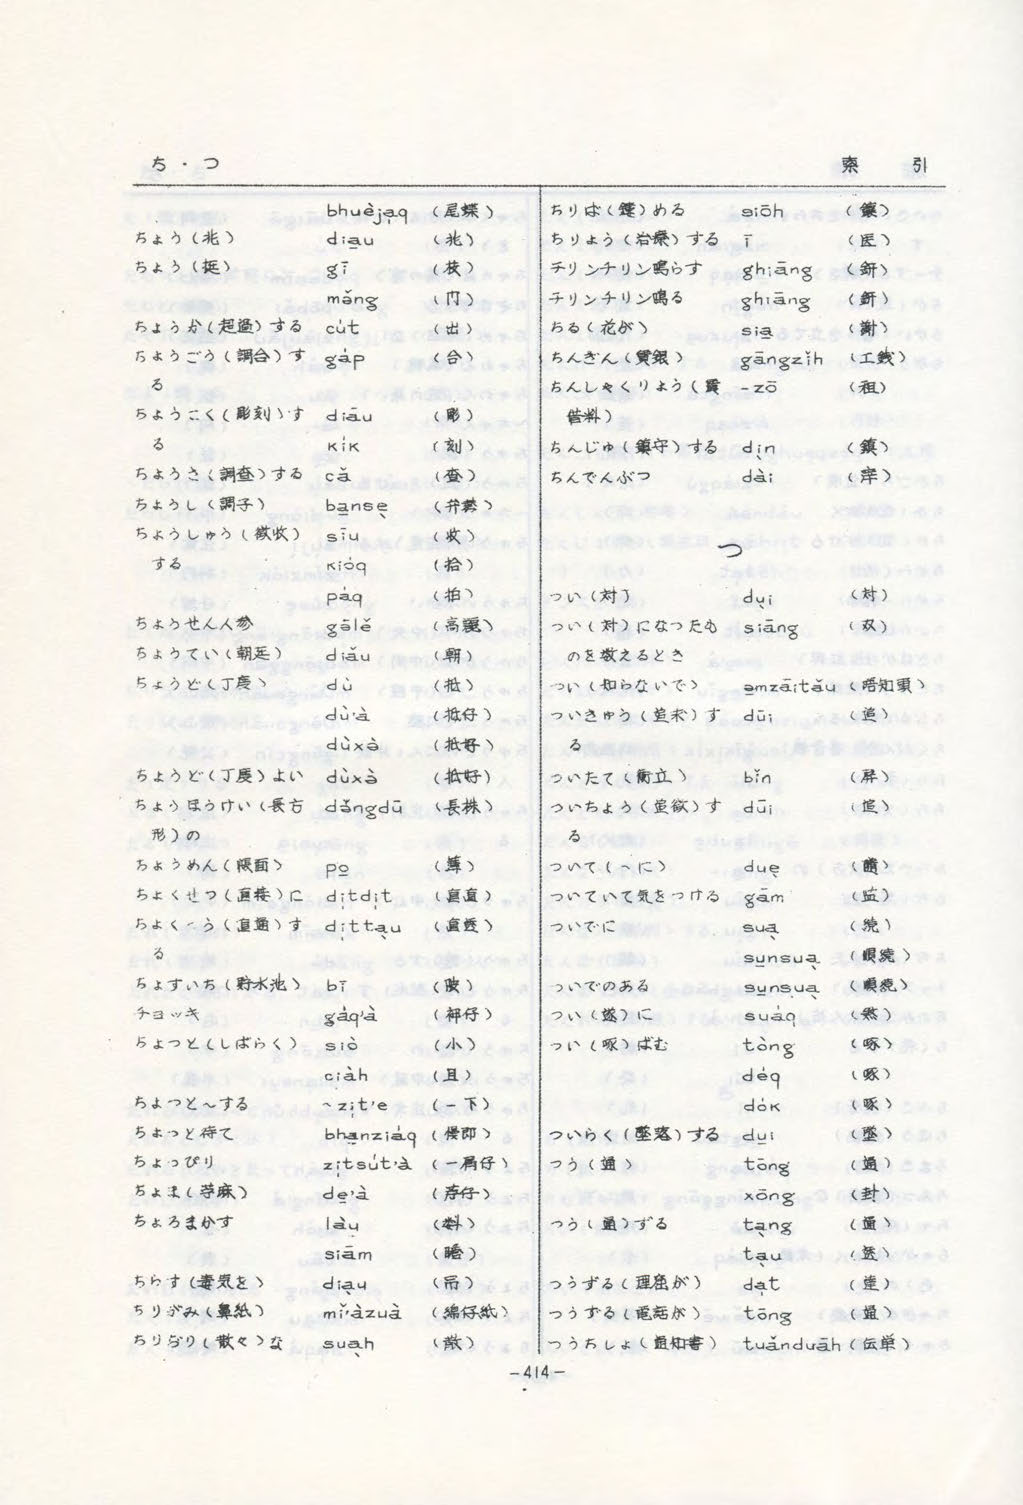 ち・つ
索 引
bhuèjạq (尾蝶)
ちょう(兆) diau (兆)
ちょう(挺) gī (枝)
mǎng (门)
ちょうか(超過)する cút (出)
ちょうごう(調合)す gáp (合)
る
ちょうこく(彫刻)す diāu (彫)
る kík (刻)
ちょうさ(調査)する cǎ (査)
ちょうし(調子) banse
ちょうしゅう(徴收) sīu (收)
する kióq (拾)
páq (拍)
ちょうせん人参 gōlě (高麗)
ちょうてい(朝廷) diǎu (朝)
ちょうど(丁度) dù (抵)
dù'à (抵仔)
dùxà (抵好)
ちょうど(丁度)よい dùxà (抵好)
ちょうほうけい(長方 dǎngdū (長株)
形)の
ちょうめん(帳面) po (簿)
ちょくせつ(直接)に dịtdịt (直直)
ちょくつう(直通)す dịttạu (直透)
る
ちょすいち(貯水池) bī (陂)
チョッキ gáq'à
ちょっと(しばらく) siò (小)
ciàh (且)
ちょっと~する ~zịt'e (一下)
ちょっと待て bhanziáq (慢即)
ちょっぴり zịtsút'à (一屑仔)
ちょま(苧麻) de'à (苧仔)
ちょろまかす làu
siām
ちらす(毒気を) diạu (吊)
ちりがみ(鼻紙) mǐ'àzuà (綿仔紙)
ちりぢり(散々)な suạh (散)
ちりば(鏤)める siōh (鑲)
ちりょう(治療)する ī (医)
チリンチリン鳴らす ghiāng (鈃)
チリンチリン鳴る ghiāng (鈃)
ちる(花が) sia (謝)
ちんぎん(賃銀) gāngzǐh (工銭)
ちんしゃくりょう(賃 -zō (租)
借料)
ちんじゅ(鎮守)する dịn (鎮)
ちんでんぶつ dài (滓)
つ
つい(対) dụi (対)
つい(対)になったも siāng (双)
のを数えるとき
つい(知らないで) ạmzāitǎu (唔知頭)
ついきゅう(追求)す dūi (追)
る
ついたて(衝立) bǐn (屏)
ついちょう(追徴)す dūi (追)
る
ついて(~に) duẹ
ついていて気をつける gām (監)
ついでに suạ (続)
sunsuạ (順続)
ついでのある sunsuạ (順続)
つい(遂)に suáq (煞)
つい(啄)ばむ tòng (啄)
déq (啄)
dók (啄)
ついらく(墜落)する dui (墜)
つう(通) tōng (通)
xōng (封)
つう(通)ずる tạng (通)
tạu (透)
つうずる(理窟が) dạt (達)
つうずる(電話が) tōng (通)
つうちしょ(通知書) tuǎnduāh (伝単)
-414-